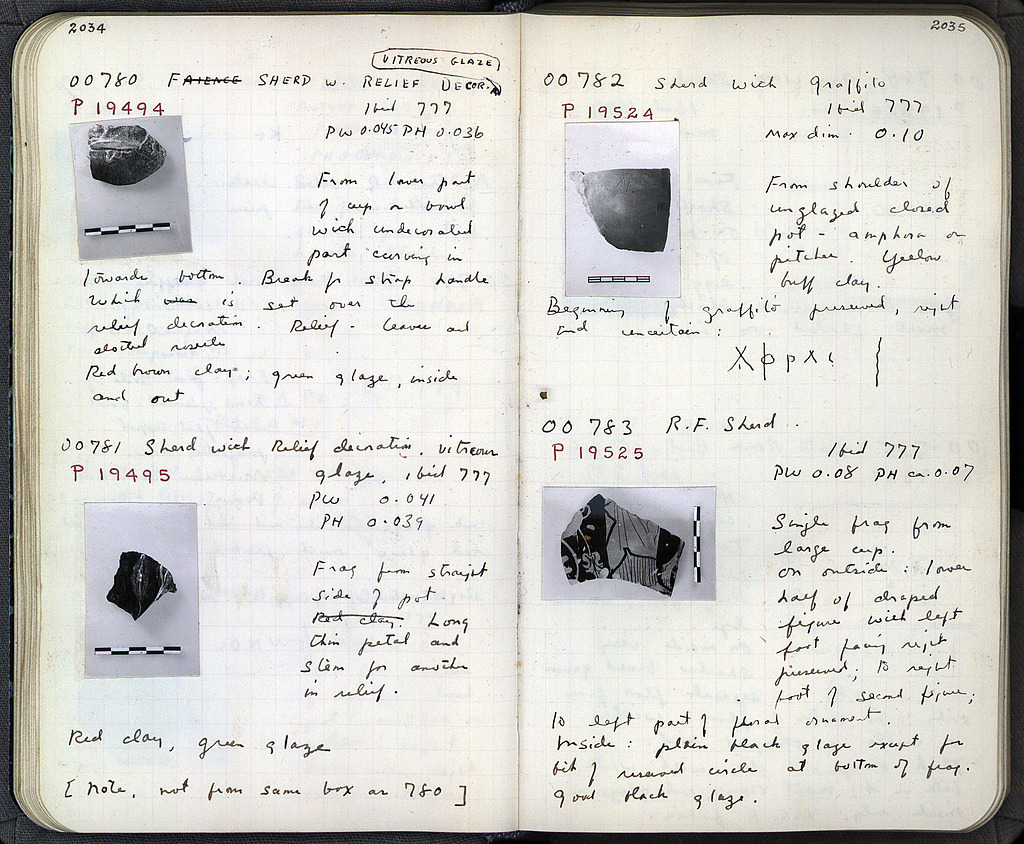 2034
VITREOUS GLAZE
OO780 FAIENCE SHERD W. RELIEF DECOR.
P 19494
Ibid 777
PW 0.045 PH 0.036
From lower part
of cup or bowl
with undecorated
part curving in
towards bottom. Break for strap handle
which is set over the
relief decoration. Relief - leaves and
rosette
Red brown clay; green glaze, inside
and out
OO781 Sherd with Relief decoration, vitreous
P 19495
glaze, ibid 777
PW 0.041
PH 0.039
Frag from straight
side of pot
Red clay. Long
thin petal and
stem for another
in relief.
Red clay, green glaze
[Note, not from same box as 780]
2035
OO 782 Sherd with graffito
P 19524
Ibid 777
Max dim. 0.10
From shoulder of
unglazed closed
pot - amphora or
pitcher. Yellow
buff clay.
Beginning of graffito preserved, right
end uncertain:
OO 783 R.F. Sherd
P 19525
Ibid 777
PW 0.08 PH ca. 0.07
Single frag from
large cup.
On outside: lower
half of draped
figure with left
foot facing right
preserved; to right
foot of second figure;
to left part of floral ornament.
Inside: plain black glaze except for
bit of reserved circle at bottom of frag.
Good black glaze.